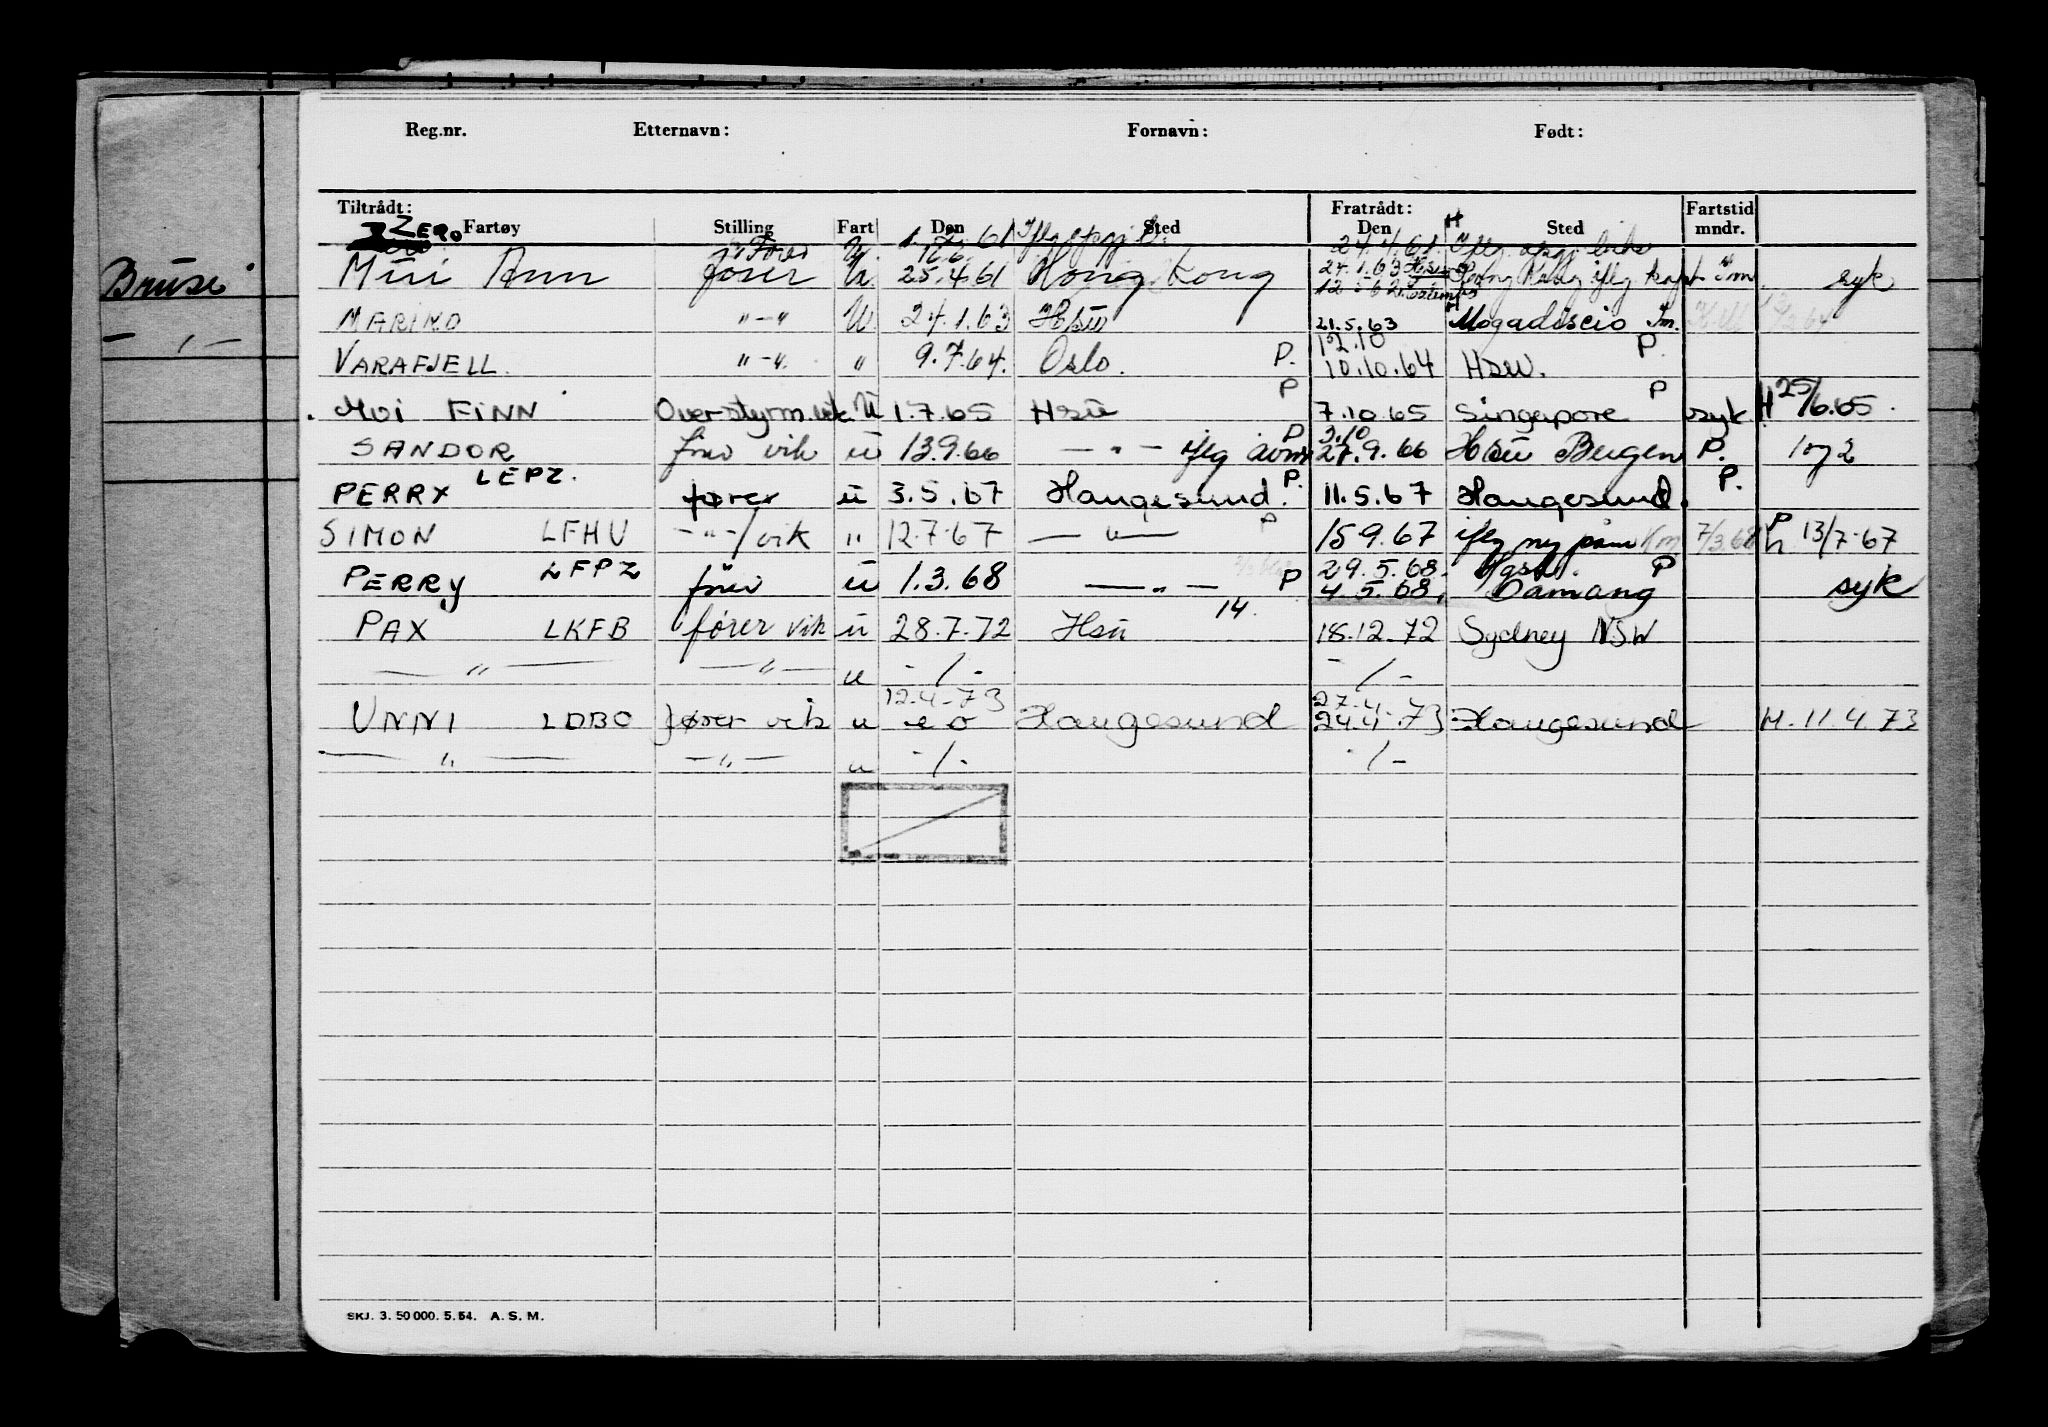 Reg.nr. Etternavn: Fornavn: Født:
Tiltrådt: Fratrådt: Fartstid
Fartøy Stilling Fart Den Sted Den Sted mndr.
ZERO Fører U. 1. 61 Iflg oppg 24.4.61 Iflg oppg
Brusi Müi Ann fører U. 25.4.61 Hong Kong 24.1.63 Hong Kong iflg kapt Im. syk
MARIKO "-" U 24.1.63 Hsü 21.5.63 Mogadiscio Im.
12.10
VARAFJELL. "-" " 9.7.64. Oslo. P. 10.10.64 Hsu. P
Moi FINN Overstyrm.vik Ü 1.7.65 Hsü P 7.10.65 Singapore P syk H 25/6.65.
3.10
SANDOR fører vik ü 13.9.66 - " - iflg P 27.9.66 Hsü Bergen P. 1 og 2
PERRY LEPZ. fører ü 3.5.67 Haugesund. P. 11.5.67 Haugesund. P.
SIMON LFHU - " -/vik " 12.7.67 - " - P 15.9.67 iflg ny 7/3.68 P h 13/7-67
29.5.68. Hgsd.
PERRY LFPZ fører ü 1.3.68 - " - P 4.5.68. Damang P syk
PAX LKFB fører vik ü 28.7.72 Hsü 14. 18.12.72 Sydney NSW
- " - - " - u - / - - / -
12.4.73 27.4.
UNNI LDBO fører vik u e o Haugesund 24.4.73 Haugesund H. 11.4.73
- " - - " - u - / - - / -
SKJ. 3. 50 000. 5. 54. A. S. M.